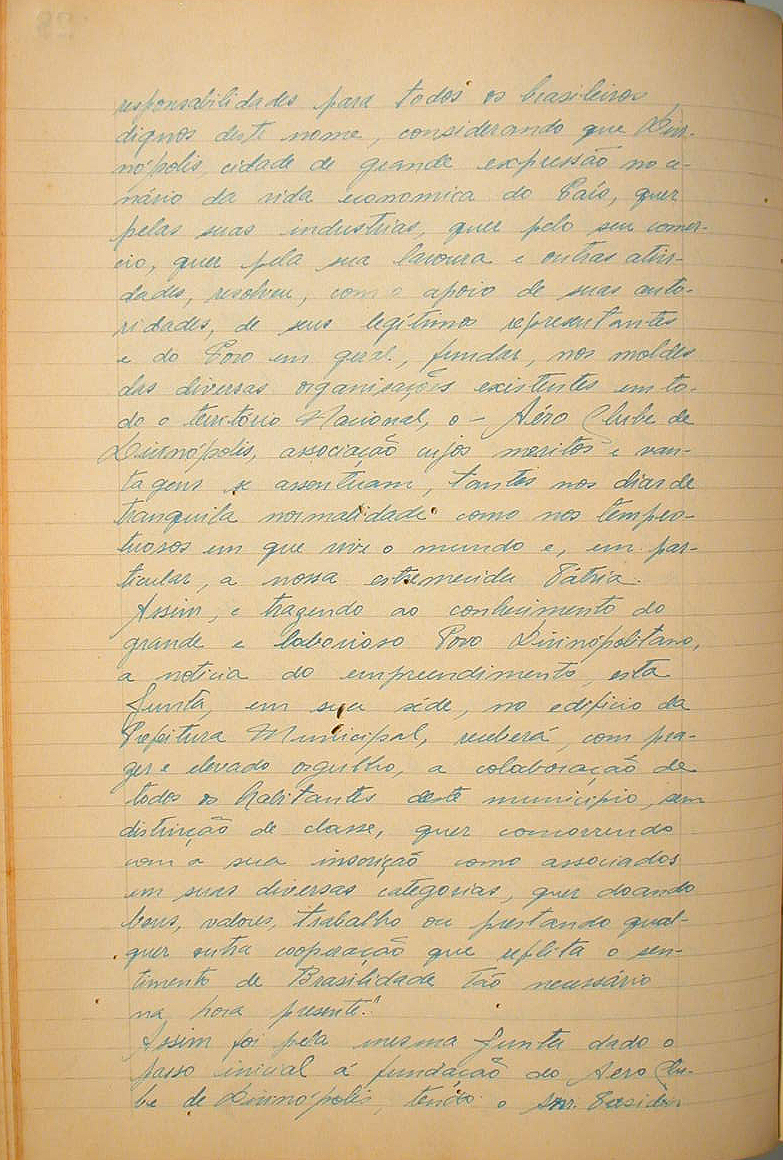 responsabilidades para todos os brasileiros
dignos deste nome, considerando que Divi-
nópolis, cidade de grande expressão no ce-
nário da vida economica do País, quer
pelas suas industrias, quer pelo seu comer-
cio, quer pela sua lavoura e outras ativi-
dades, resolveu, com o apoio de suas auto-
ridades, de seus legítimos representantes
e do Povo em geral, fundar, nos moldes
das diversas organisações existentes em to-
do o território Nacional, o - Aéro Clube de
Divinópolis, associação cujos meritos e van-
tagens se assentuam, tantos nos dias de
tranquila normalidade como nos tempes-
tuosos em que vive o mundo e, em par-
ticular, a nossa estremecida Pátria.
Assim, e trazendo ao conhecimento do
grande e laborioso Povo Divinopolitano,
a noticia do empreendimento, esta
Junta, em sua séde, no edificio da
Prefeitura Municipal, receberá, com pra-
zer e elevado orgulho, a colaboração de
todos os habitantes deste municipio, sem
distinção de classe, quer concorrendo
com a sua inscrição como associados
em suas diversas categorias, quer doando
bens, valores, trabalho ou prestando qual-
quer outra cooperação que reflita o sen-
timento de Brasilidade tão necessário
na hora presente."
Assim foi pela mesma Junta dado o
passo inicial á fundação do Aero Clu-
be de Divinópolis, tendo o Snr. Presiden